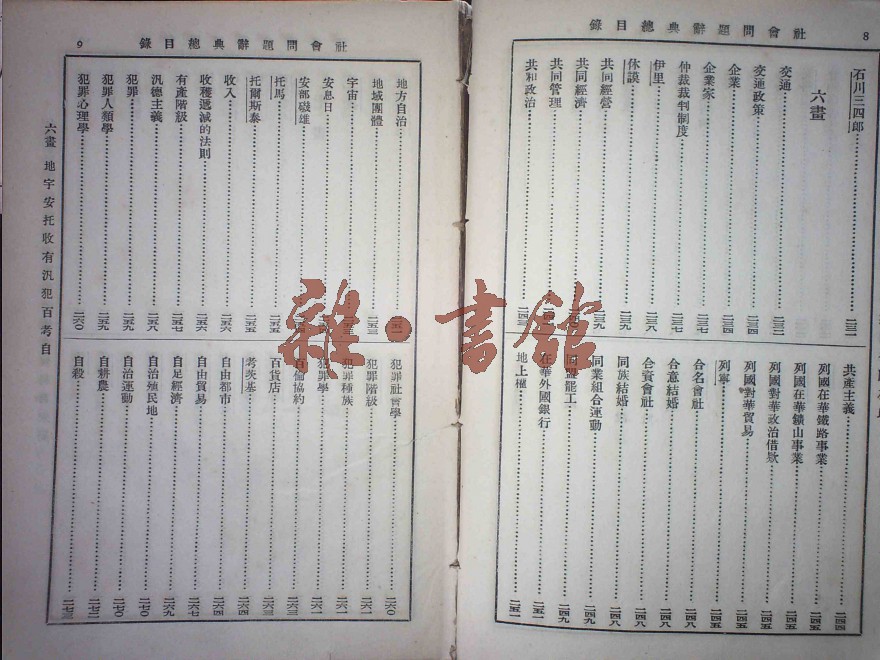 社會問題辭典總目錄 8
石川三四郎
六畫
交通
交通政策 二三四
企業 二三四
企業家 二三七
仲裁裁判制度 二三七
伊里 二三八
休謨 二三九
共同經營 二三九
共同經濟
共同管理
共和政治 二四三
共產主義 二四四
列國在華鐵路事業 二四四
列國在華鑛山事業 二四五
列國對華政治借欵 二四五
列國對華貿易 二四五
列寧 二四五
合名會社 二四八
合意結婚 二四八
合資會社 二四八
同族結婚 二四八
同業組合運動 二四九
同盟罷工 二四九
在華外國銀行 二五一
地上權 二五一
社會問題辭典總目錄 9
地方自治 二五一
地域團體 二五三
宇宙
安息日
安部磯雄
托馬 二五五
托爾斯泰 二五五
收入 二五六
收穫遞減的法則 二五六
有產階級 二五七
汎德主義 二五八
犯罪 二五九
犯罪人類學 二五九
犯罪心理學 二六〇
犯罪社會學 二六〇
犯罪階級 二六一
犯罪種族 二六一
犯罪學 二六一
百倫協約 二六三
百貨店 二六三
考茨基 二六四
自由都市 二六四
自由貿易 二六七
自足經濟 二六九
自治殖民地 二七〇
自治運動 二七〇
自耕農 二七二
自殺 二七三
六畫 地宇安托收有汎犯百考自
雜·書館